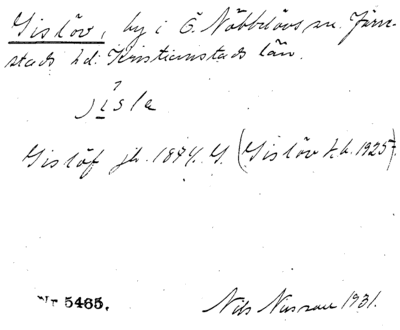 Gislöv, by i Ö. Nöbbelövs sn. Järre-
stads hd. Kristianstads län.
jisla
Gislöf jb. 1874. Y. (Gislöv t.b. 1925)
Nr 5465.
Nils 1931.